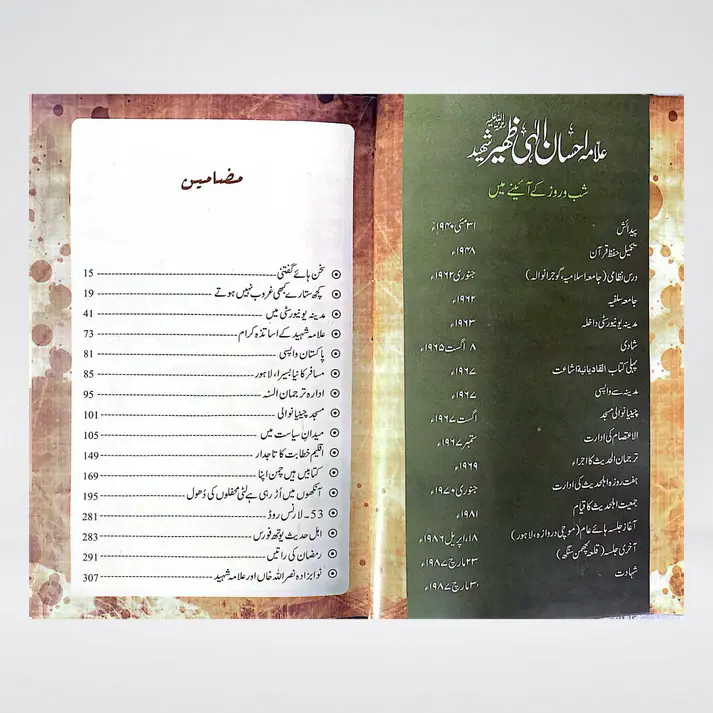 علامہ احسان الٰہی ظہیر شہید رحمۃ اللہ علیہ
شب و روز کے آئینے میں
پیدائش ۳۱ مئی ۱۹۴۰ء
تکمیل حفظ قرآن ۱۹۴۸ء
درس نظامی (جامعہ اسلامیہ، گوجرانوالہ) جنوری ۱۹۶۲ء
جامعہ سلفیہ ۱۹۶۲ء
مدینہ یونیورسٹی داخلہ ۱۹۶۳ء
شادی ۸ اگست ۱۹۶۵ء
پہلی کتاب القادیانیة اشاعت ۱۹۶۷ء
مدینہ سے واپسی ۱۹۶۷ء
چینیانوالی مسجد اگست ۱۹۶۷ء
الاعتصام کی ادارت ستمبر ۱۹۶۷ء
ترجمان الحدیث کا اجراء ۱۹۶۹ء
ہفت روزہ اہلحدیث کی ادارت جنوری ۱۹۷۰ء
جمعیت اہلحدیث کا قیام ۱۹۸۱ء
آغاز جلسہ ہائے عام (موچی دروازہ، لاہور) ۱۸، اپریل ۱۹۸۶ء
آخری جلسہ (قلعہ لچھمن سنگھ) ۲۳ مارچ ۱۹۸۷ء
شہادت ۳۰ مارچ ۱۹۸۷ء
مضامین
سخن ہائے گفتنی 15
کچھ ستارے کبھی غروب نہیں ہوتے 19
مدینہ یونیورسٹی میں 41
علامہ شہید کے اساتذہ کرام 73
پاکستان واپسی 81
مسافر کا نیا بسیرا، لاہور 85
ادارہ ترجمان السنہ 95
مسجد چینیانوالی 101
میدان سیاست میں 105
اقلیم خطابت کا تاجدار 149
کتابیں ہیں چمن اپنا 169
آنکھوں میں اُڑ رہی ہے لٹی محفلوں کی دُھول 195
53۔ لارنس روڈ 281
اہل حدیث یوتھ فورس 283
رمضان کی راتیں 291
نوابزادہ نصر اللہ خاں اور علامہ شہید 307